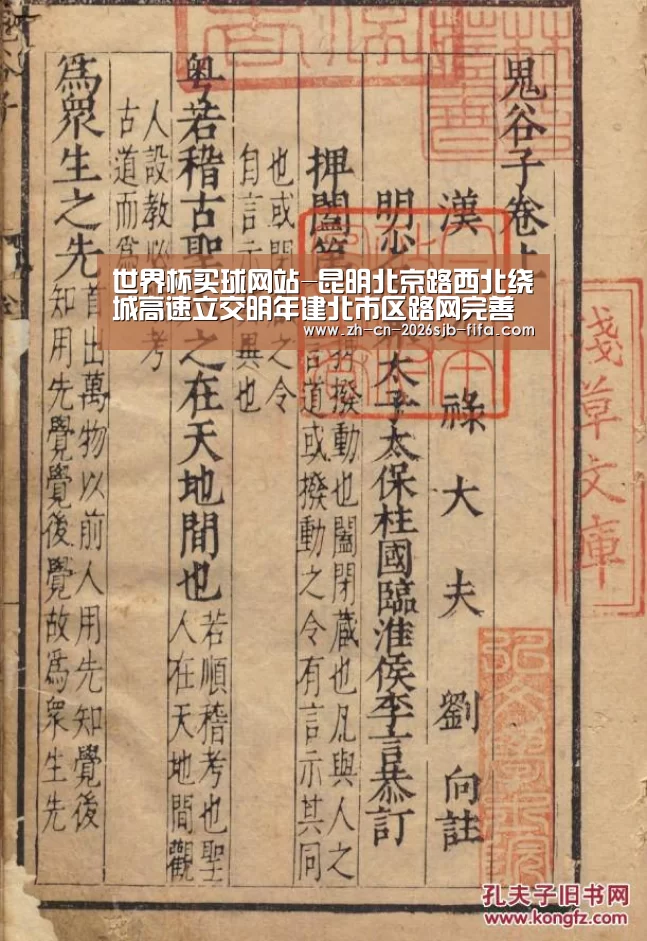 鬼谷子卷上
漢 祿大夫劉向註
明 太子太保柱國臨淮侯李言恭訂
捭闔第
撥動也闔閉藏也凡與人之
言道或撥動之令有言示其同
也或閉 之令
自言示 異也
粤若稽古聖 之在天地間也
若順稽考也聖
人在天地間觀
人設教必 考
古道而爲
爲眾生之先
首出萬物以前人用先知覺後
知用先覺覺後覺故爲眾生先
淺草文庫
世界杯买球网站-昆明北京路西北绕
城高速立交明年建北市区路网完善
www.zh-cn-2026sjb-fifa.com
孔夫子旧书网
www.kongfz.com